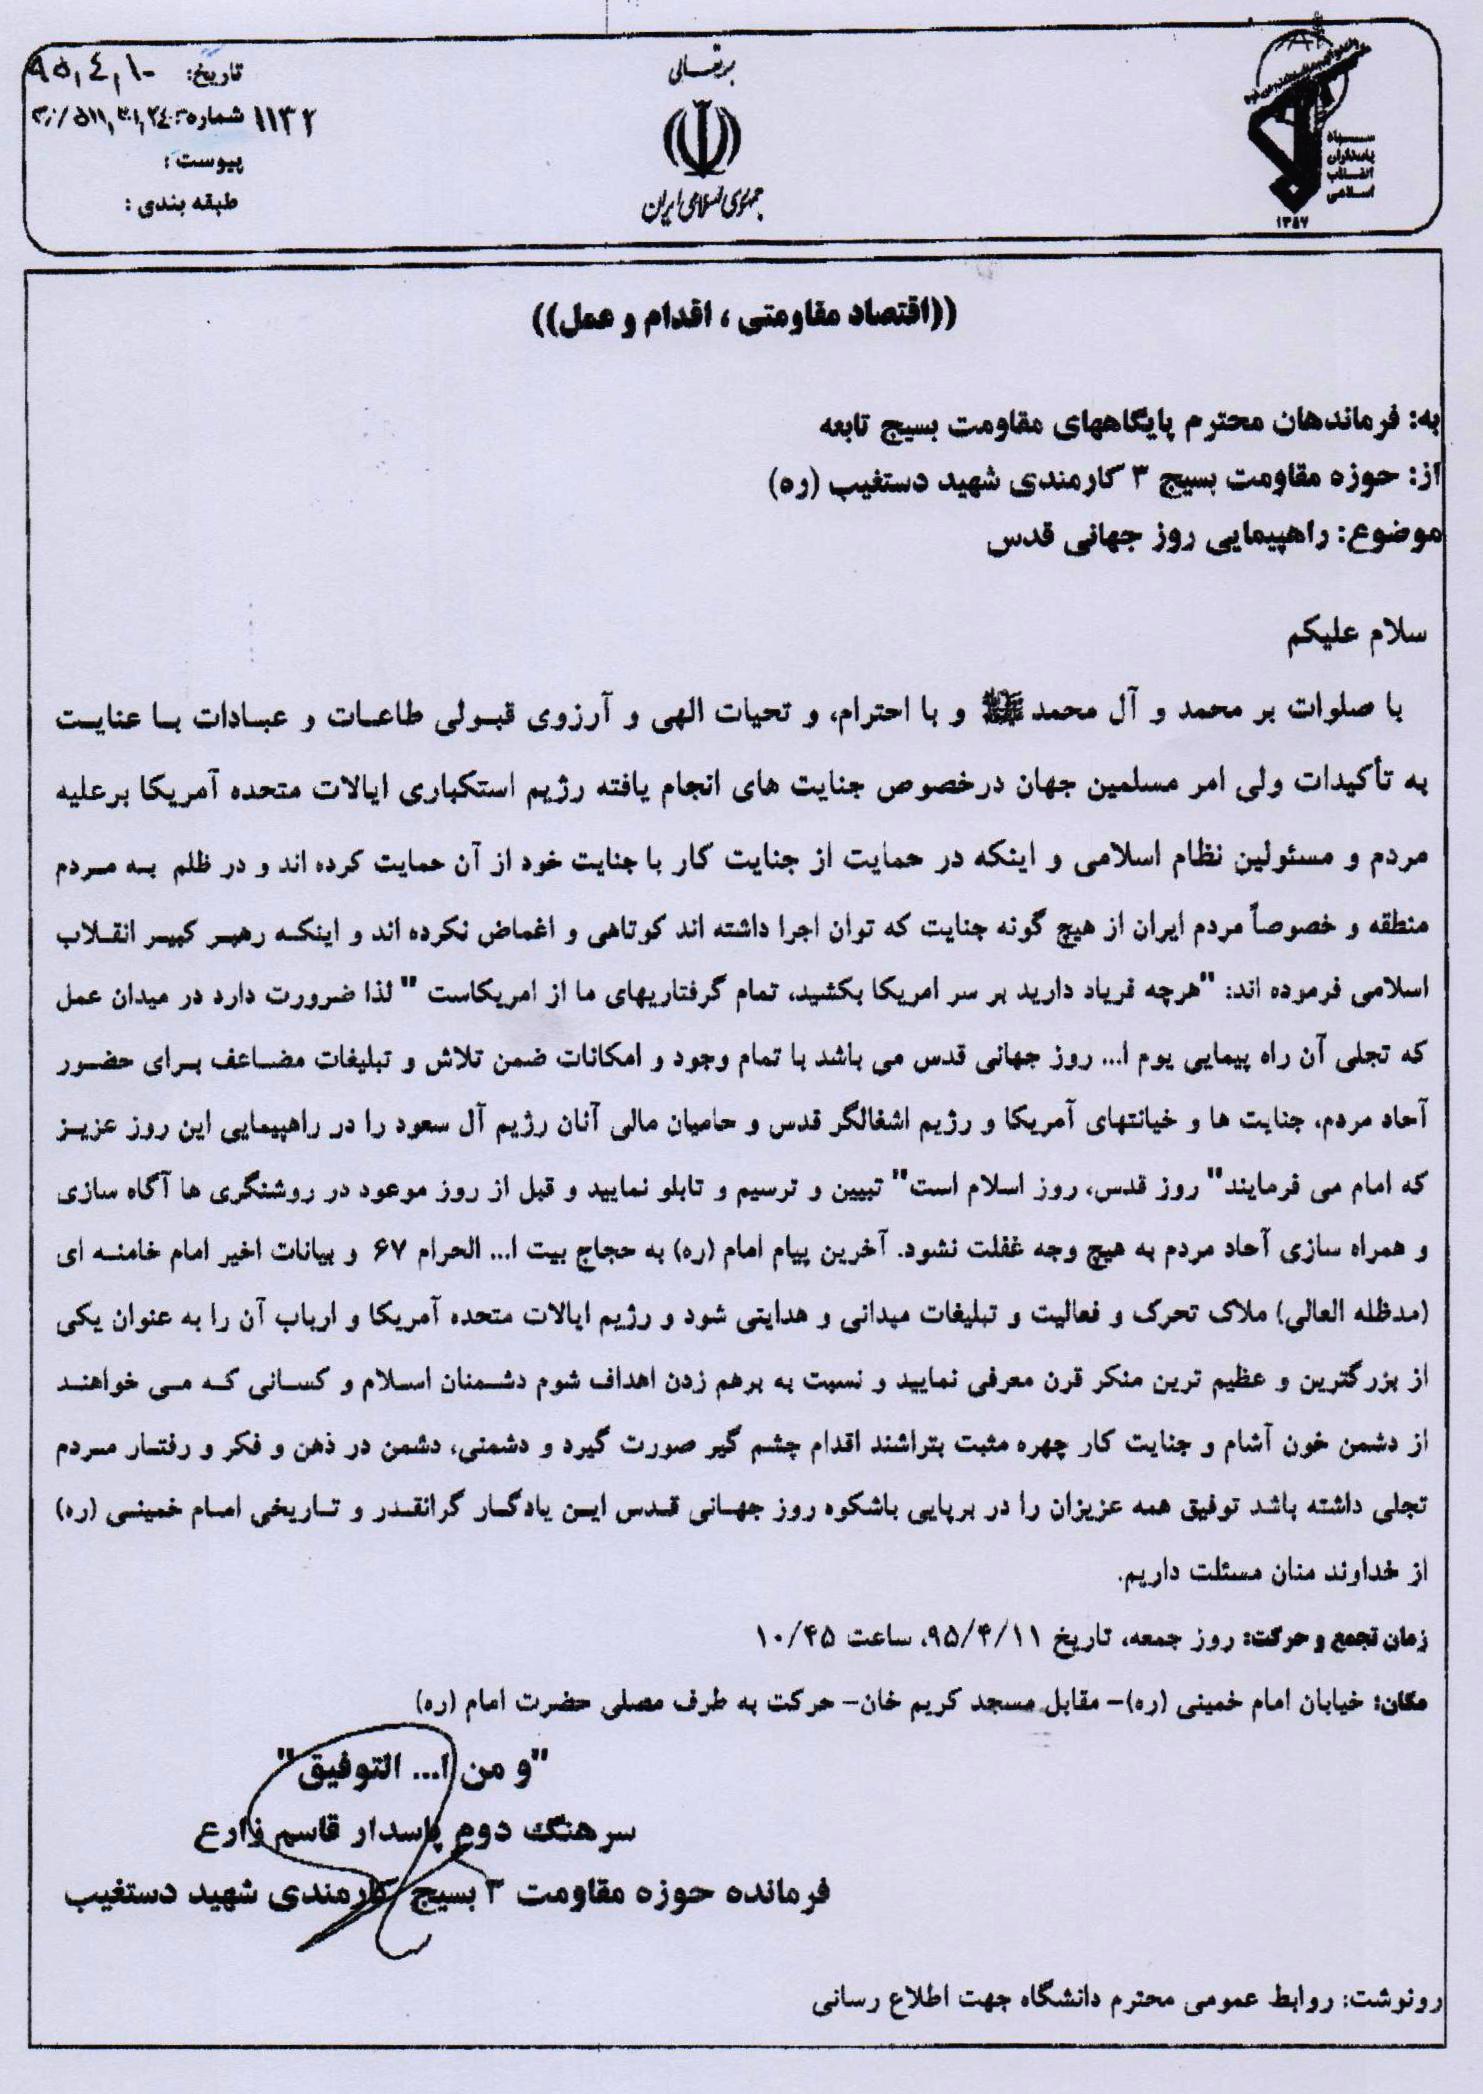 بسمه تعالی
جمهوری اسلامی ایران
سپاه
پاسداران
انقلاب
اسلامی
۱۳۵۷
تاریخ: ۹۵,۴,۱۰
شماره: ۱۱۳۲
پیوست :
طبقه بندی :
((اقتصاد مقاومتی ، اقدام و عمل))
به: فرماندهان محترم پایگاههای مقاومت بسیج تابعه
از: حوزه مقاومت بسیج ۳ کارمندی شهید دستغیب (ره)
موضوع: راهپیمایی روز جهانی قدس
سلام علیکم
با صلوات بر محمد و آل محمد ﷺ و با احترام، و تحیات الهی و آرزوی قبولی طاعات و عبادات با عنایت
به تأکیدات ولی امر مسلمین جهان درخصوص جنایت های انجام یافته رژیم استکباری ایالات متحده آمریکا برعلیه
مردم و مسئولین نظام اسلامی و اینکه در حمایت از جنایت کار با جنایت خود از آن حمایت کرده اند و در ظلم به مردم
منطقه و خصوصاً مردم ایران از هیچ گونه جنایت که توان اجرا داشته اند کوتاهی و اغماض نکرده اند و اینکه رهبر کبیر انقلاب
اسلامی فرموده اند: "هرچه فریاد دارید بر سر امریکا بکشید، تمام گرفتاریهای ما از امریکاست " لذا ضرورت دارد در میدان عمل
که تجلی آن راه پیمایی یوم ا... روز جهانی قدس می باشد با تمام وجود و امکانات ضمن تلاش و تبلیغات مضاعف برای حضور
آحاد مردم، جنایت ها و خیانتهای آمریکا و رژیم اشغالگر قدس و حامیان مالی آنان رژیم آل سعود را در راهپیمایی این روز عزیز
که امام می فرمایند" روز قدس، روز اسلام است" تبیین و ترسیم و تابلو نمایید و قبل از روز موعود در روشنگری ها آگاه سازی
و همراه سازی آحاد مردم به هیچ وجه غفلت نشود. آخرین پیام امام (ره) به حجاج بیت ا... الحرام ۶۷ و بیانات اخیر امام خامنه ای
(مدظله العالی) ملاک تحرک و فعالیت و تبلیغات میدانی و هدایتی شود و رژیم ایالات متحده آمریکا و ارباب آن را به عنوان یکی
از بزرگترین و عظیم ترین منکر قرن معرفی نمایید و نسبت به برهم زدن اهداف شوم دشمنان اسلام و کسانی که می خواهند
از دشمن خون آشام و جنایت کار چهره مثبت بتراشند اقدام چشم گیر صورت گیرد و دشمنی، دشمن در ذهن و فکر و رفتار مردم
تجلی داشته باشد توفیق همه عزیزان را در برپایی باشکوه روز جهانی قدس این یادگار گرانقدر و تاریخی امام خمینی (ره)
از خداوند منان مسئلت داریم.
زمان تجمع و حرکت: روز جمعه، تاریخ ۹۵/۴/۱۱، ساعت ۱۰/۴۵
مکان: خیابان امام خمینی (ره)– مقابل مسجد کریم خان– حرکت به طرف مصلی حضرت امام (ره)
"و من ا... التوفیق"
سرهنگ دوم پاسدار قاسم زارع
فرمانده حوزه مقاومت ۳ بسیج کارمندی شهید دستغیب
رونوشت: روابط عمومی محترم دانشگاه جهت اطلاع رسانی